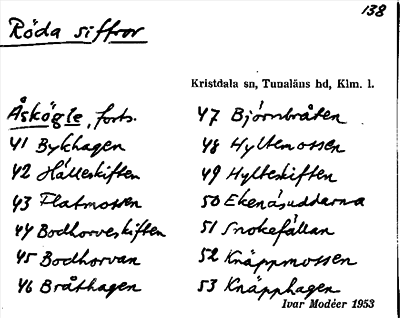 138
Röda siffror
Kristdala sn, Tunaläns hd, Klm. l.
Åskögle, forts.
41 Bykhagen
42 Hälleskiften
43 Flatmossen
44 Bodhorveskiften
45 Bodhorvan
46 Bråthagen
47 Björnbråten
48 Hyltemossen
49 Hylteskiften
50 Ekenäsuddarna
51 Snokefällan
52 Knäppmossen
53 Knäpphagen
Ivar Modéer 1953